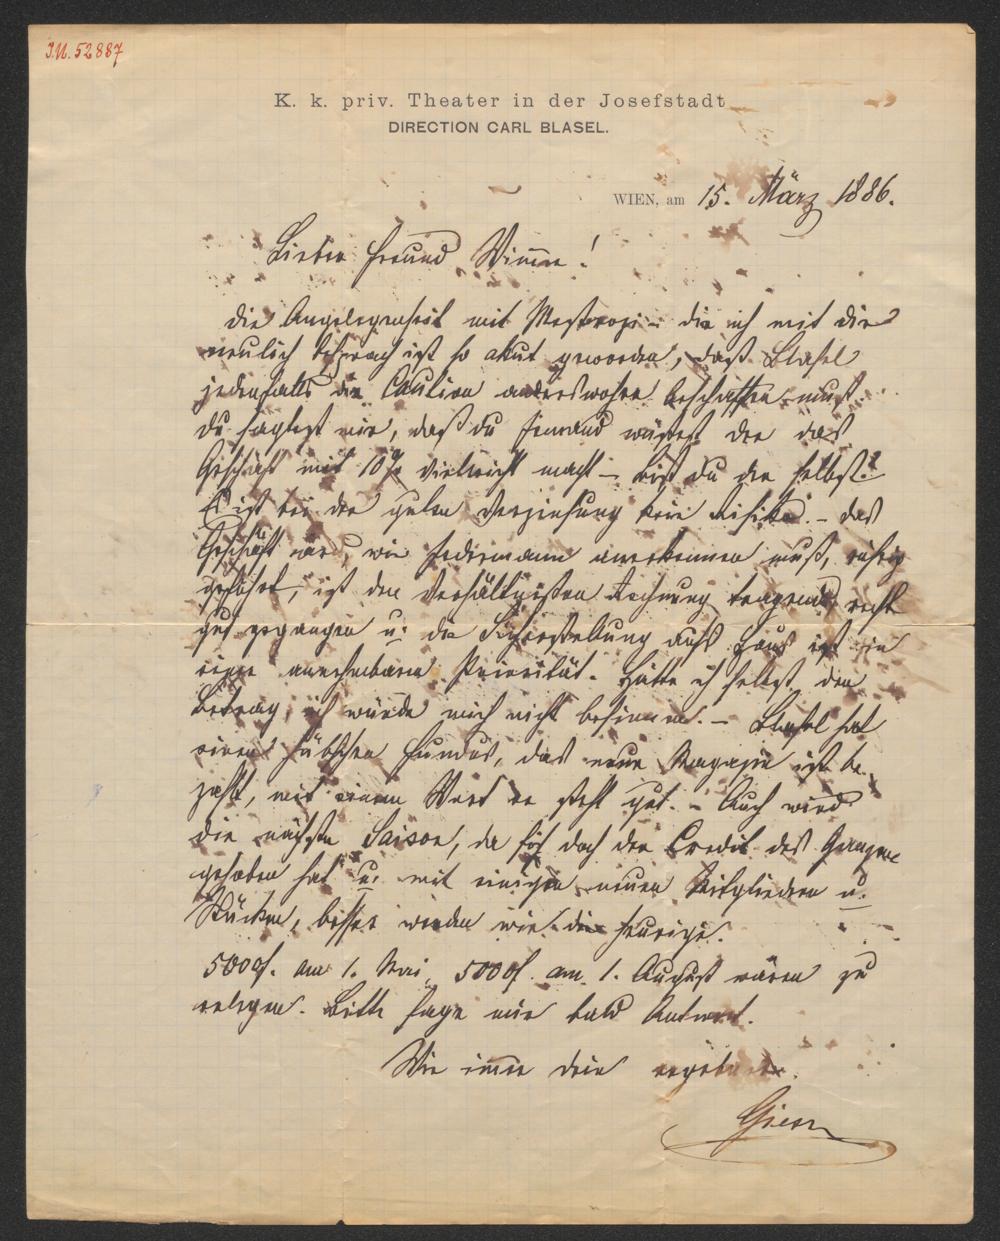 J.N. 52887
K. k. priv. Theater in der Josefstadt
DIRECTION CARL BLASEL.
WIEN, am 15. März 1886.
Lieber Freund Wimmer!
Die Angelegenheit mit die ich mit dir
neulich besprach ist so akut geworden, daß Blasel
jedenfalls die Caution anderswoher beschaffen muß.
Du sagtest mir, daß du Jemand wüßtest der das
Geschäft mit 10% vielleicht macht – bist du der selbst?
Es ist bei der guten Verzinsung kein Risiko. – Das
Geschäft wird, wie Jedermann anerkennen muß,
geführt, ist den Verhältnißen Rechnung tragend, recht
gut gegangen u: die Sicherstellung aufs Haus ist in
einer annehmbaren Priorität. Hätte ich selbst den
Betrag, ich würde mich nicht besinnen. – Blasel hat
einen hübschen Fundus, das neue Magazin ist be-
zahlt, mit einem Wort er steht gut. – Auch wird
die nächste Saison, da sich doch der Credit des Ganzen
gehoben hat u. mit einigen neuen Mitgliedern u.
Stücken, besser werden wie die heurige.
5000f. am 1. Mai, 5000f. am 1. August wären zu
erlegen. Bitte sage mir bald Antwort.
Wie immer dein ergebener